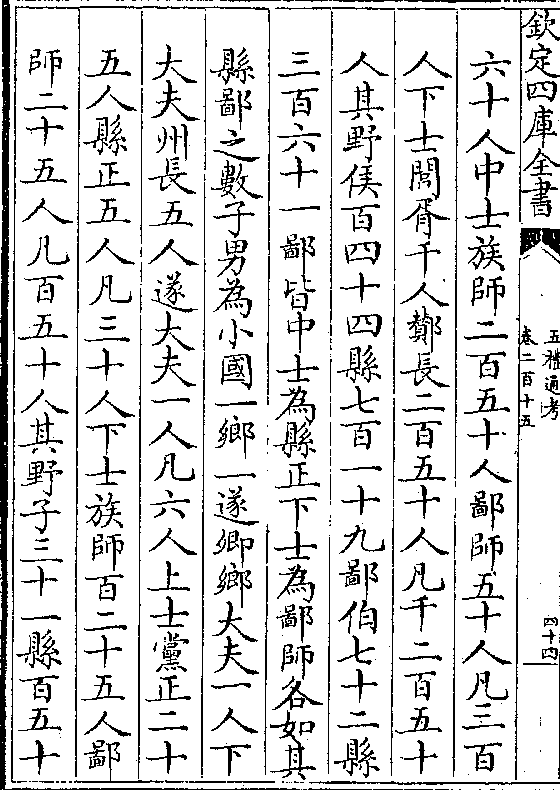 欽定四庫全書
五禮通考
卷二百十五
四十四
六十人中士族師二百五十人鄙師五十人凡三百
人下士閭胥千人酇長二百五十人凡千二百五十
人其野侯百四十四縣七百一十九鄙伯七十二縣
三百六十一鄙皆中士為縣正下士為鄙師各如其
縣鄙之數子男為小國一鄉一遂卿鄉大夫一人下
大夫州長五人遂大夫一人凡六人上士黨正二十
五人縣正五人凡三十人下士族師百二十五人鄙
師二十五人凡百五十人其野子三十一縣百五十